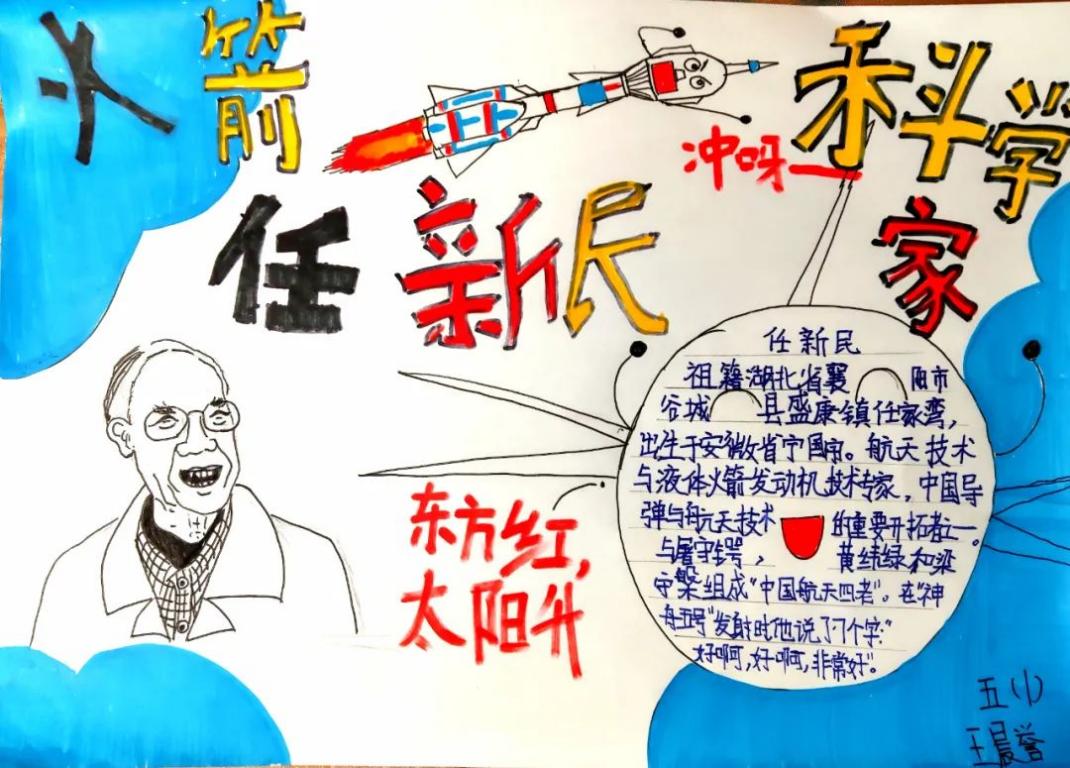 火箭 科学
冲呀—
任新民 家
任新民
祖籍湖北省襄阳市
谷城县盛康镇任家湾,
出生于安徽省宁国市。航天技术
与液体火箭发动机技术专家,中国导
弹与航天技术的重要开拓者之一。
与屠守锷,黄纬绿和梁
守槃组成“中国航天四老”。在“神
舟五号”发射时他说了7个字:“
好啊,好啊,非常好”。
东方红,
太阳升
五(1)
王晨誉